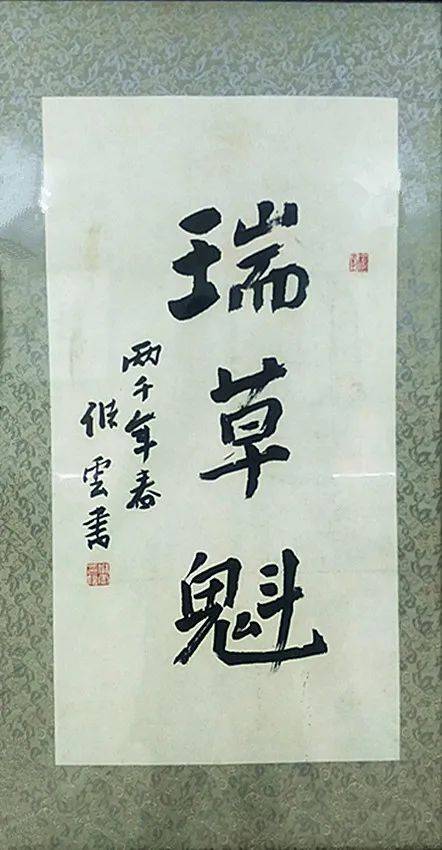 瑞草魁
两千年春
作雲書